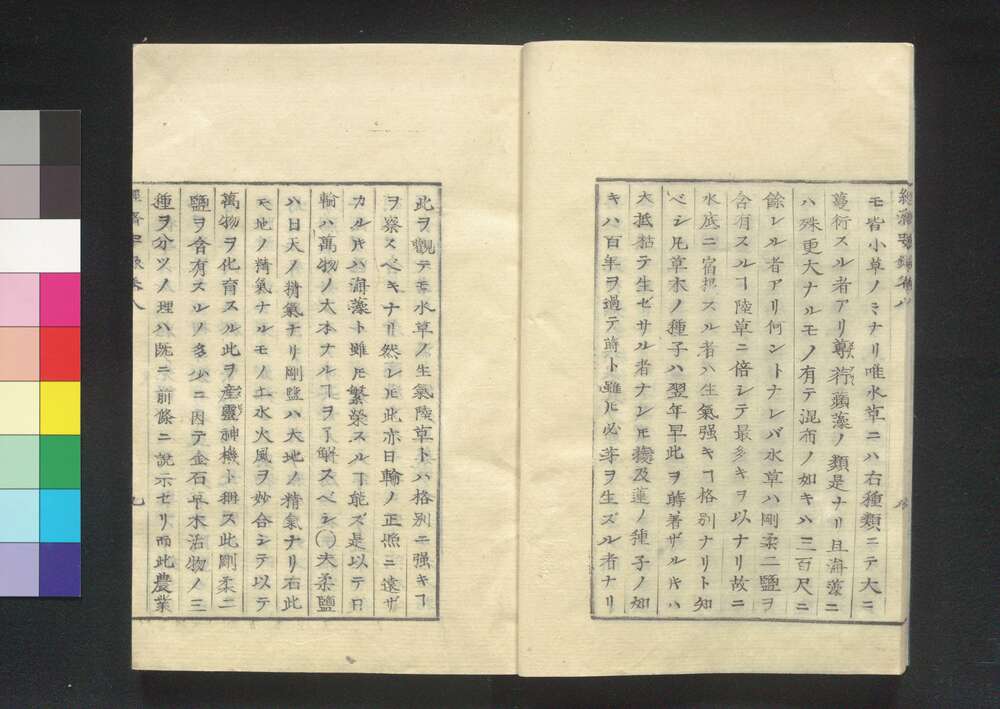 モ皆小草ノミナリ唯水草ニハ右種類ニテ大ニ
蔓衍スル者アリ蓴荇蘋藻ノ類是ナリ且海藻ニ
ハ殊更大ナルモノ有テ混布ノ如キハ三百尺ニ
餘レル者アリ何ントナレバ水草ハ剛柔二鹽ヲ
含有スルヿ陸草ニ倍シテ最多キヲ以ナリ故ニ
水底ニ宿根スル者ハ生氣强キヿ格別ナリト知
ベシ凡草木ノ種子ハ翌年早此ヲ蒔著ザルキハ
大抵枯テ生ゼサル者ナレ𪜈 及蓮ノ種子ノ如
キハ百年ヲ過テ蒔ト雖𪜈必芽ヲ生ズル者ナリ
此ヲ觀テモ水草ノ生氣陸草トハ格別ニ强キヿ
ヲ察スベキナリ然レ𪜈此亦日輪ノ正照ニ遠ザ
カルキハ海藻ト雖𪜈繁榮スルヿ能ズ是以テ日
輪ハ萬物ノ大本ナルヿヲ了解スベシ〇夫柔鹽
ハ日天ノ精氣ナリ剛鹽ハ大地ノ精氣ナリ右此
天地ノ精氣ナルモノ土水火風ヲ妙合シテ以テ
萬物ヲ化育スル此ヲ産靈神機ト稱ス此剛柔二
鹽ヲ含有スルノ多少ニ因テ金石草木活物ノ三
種ヲ分ツノ理ハ既ニ前條ニ說示セリ而此農業
九